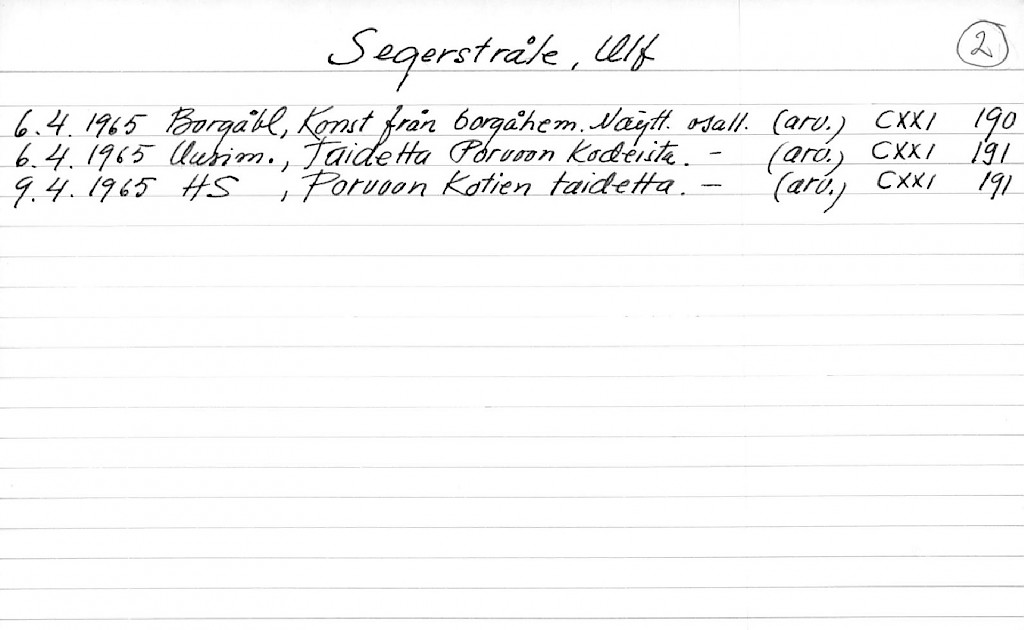 Segerstråle, Ulf
2
6.4. 1965 Borgåbl, Konst från borgåhem. Näytt. osall. (arv.) CXXI 190
6.4. 1965 Uusim., Taidetta Porvoon Kodeista. - (arv.) CXXI 191
9.4. 1965 HS , Porvoon Kotien taidetta. - (arv.) CXXI 191